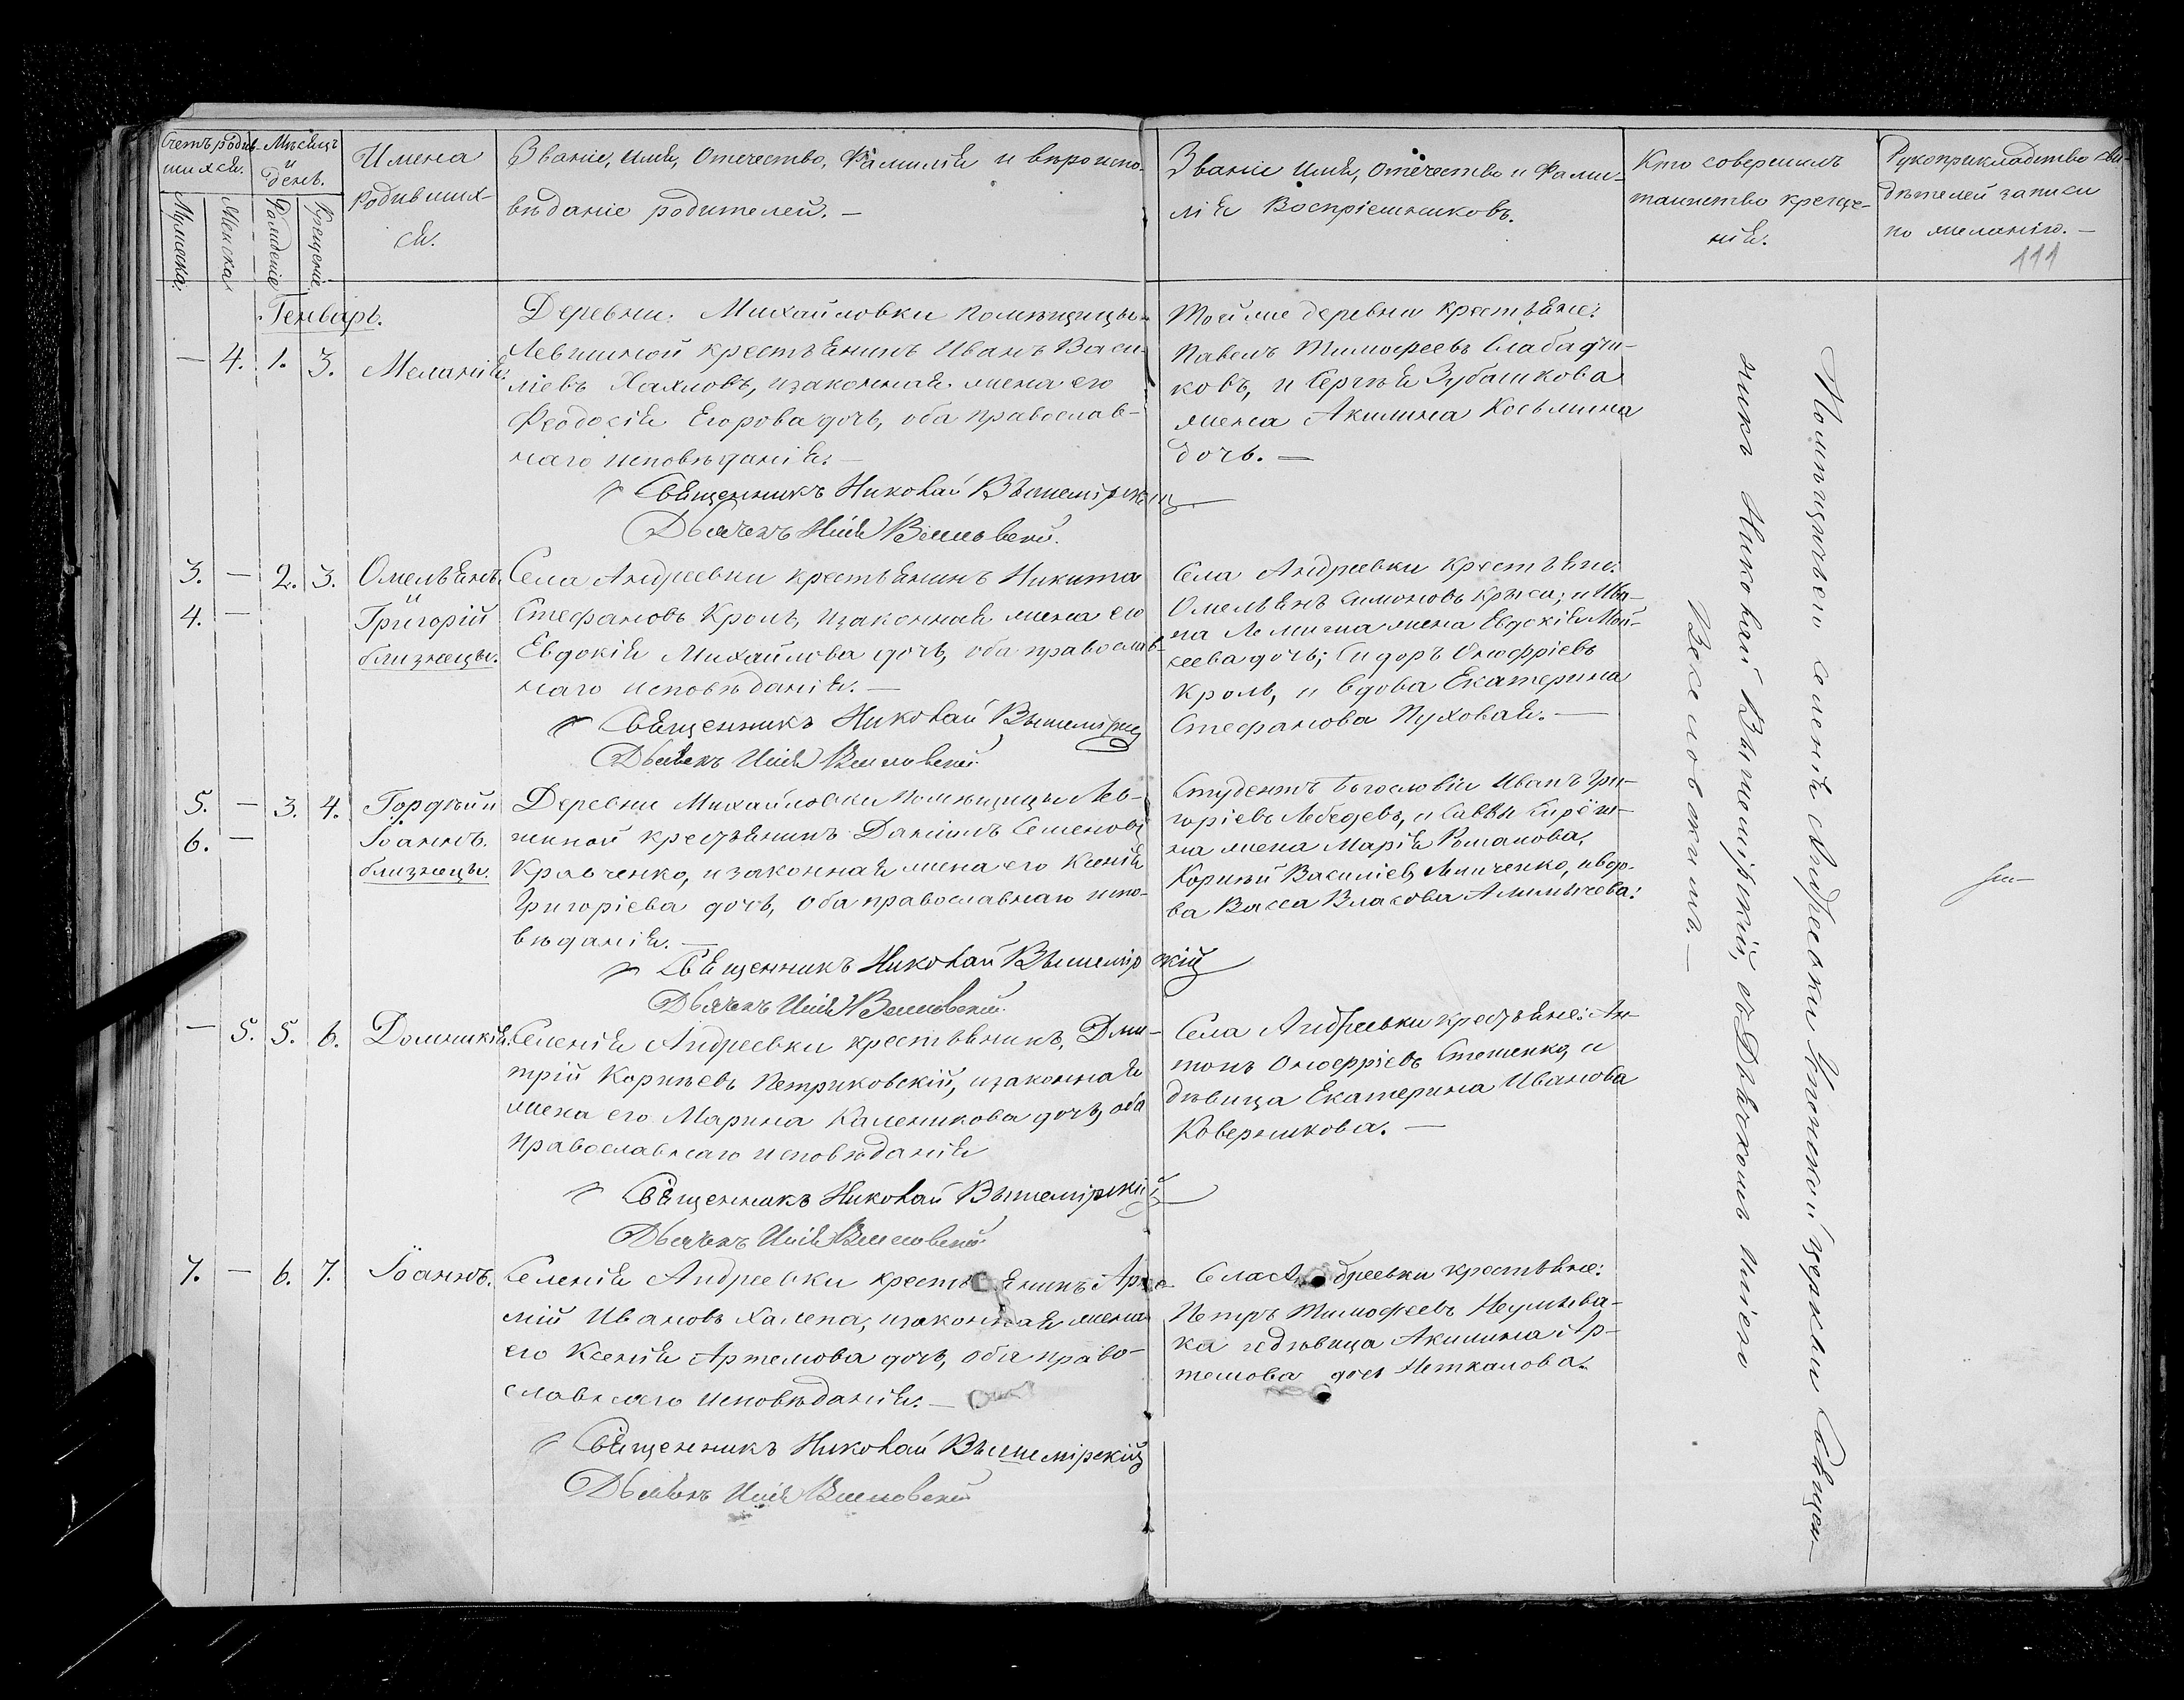 Счетъ родив-
шихся.
Мужеска.
Женска
Мѣсяцъ
и
день.
Рожденіе
Крещеніе.
Имена
родивших-
ся.
Званіе, имя, отечество, фамилія и вѣроиспо-
вѣданіе родителей. —
Званіе имя, отечество и фами-
лія Воспріемниковъ.
Кто совершилъ
таинство креще-
нія.
Рукоприкладство сви-
дѣтелей записи
по желанію. —
111
Генварь.
— 4. 1. 3. Меланія.
Деревни Михайловки помѣщицы
Левшиной крестьянинъ Иванъ Васи-
ліевъ Хахловъ, изаконная жена его
Феодосія Егорова дочь, оба православ-
наго исповѣданія. —
Священникъ Николай Вышемірскій
Дьячекъ Илія Веселовскій.
Тойже деревни крестьяне:
Павелъ Тимофеевъ Слабадчи-
ковъ, и Сергѣя Зубашкова
жена Акилина Косьмина
дочь. —
3. — 2. 3. Омельянъ.
4. — и Григорій
близнецы.
Села Андреевки крестьянинъ Никита
Стефановъ Кроль, изаконная жена его
Евдокія Михайлова дочь, оба православ-
наго исповѣданія. —
Священникъ Николай Вышемірскій
Дьячекъ Илія Веселовскій
Села Андреевки крестьяне:
Омельянъ Симоновъ Крыса; и Ива-
на жена Евдокія Мои-
сеева дочь; Сидоръ Онофріевъ
Кроль, и вдова Екатерина
Стефанова Пуховая. —
5. — 3. 4. Гордѣй и
6. — Іоаннъ.
близнецы.
Деревни Михайловки помѣщицы Лев-
шиной крестьянинъ Даніилъ Семеновъ
Кравченко, изаконная жена его Ксенія
Григоріева дочь, оба православнаго испо-
вѣданія. —
Священникъ Николай Вышемірскій
Дьячекъ Илія Веселовскій.
Студентъ Богословіи Иванъ Гри-
горіевъ Лебедевъ, и Саввы
жена Марія Романова,
Корнѣй Василіевъ и вдо-
ва Васса Власова
— 5. 5. 6. Домникія.
Селенія Андреевки крестьянинъ, Дми-
трій Корнѣевъ Петриковскій, изаконная
жена его Марина Каленикова дочь, оба
православнаго исповѣданія
Священникъ Николай Вышемірскій
Дьячекъ Илія Веселовскій
Села Андреевки крестьяне: Ан-
тонъ Онофріевъ Стоженко, и
дѣвица Екатерина Иванова
Коверникова. —
7. — 6. 7. Іоаннъ.
Селенія Андреевки крестьянинъ Арте-
мій Ивановъ Халепа, изаконная жена
его Ксенія Артемова дочь, оба право-
славнаго исповѣданія. —
Священникъ Николай Вышемірскій
Дьячекъ Илія Веселовскій
Села Андреевки крестьяне:
Петръ Тимофеевъ Неумыва-
ка и дѣвица Акилина Ар-
темова дочь Неткалова.
Помѣщичьего селенія Андреевки Успенской церкви Священ-
никъ Николай Вышемірскій, съ Дьячкомъ Иліею
Веселовскимъ. —